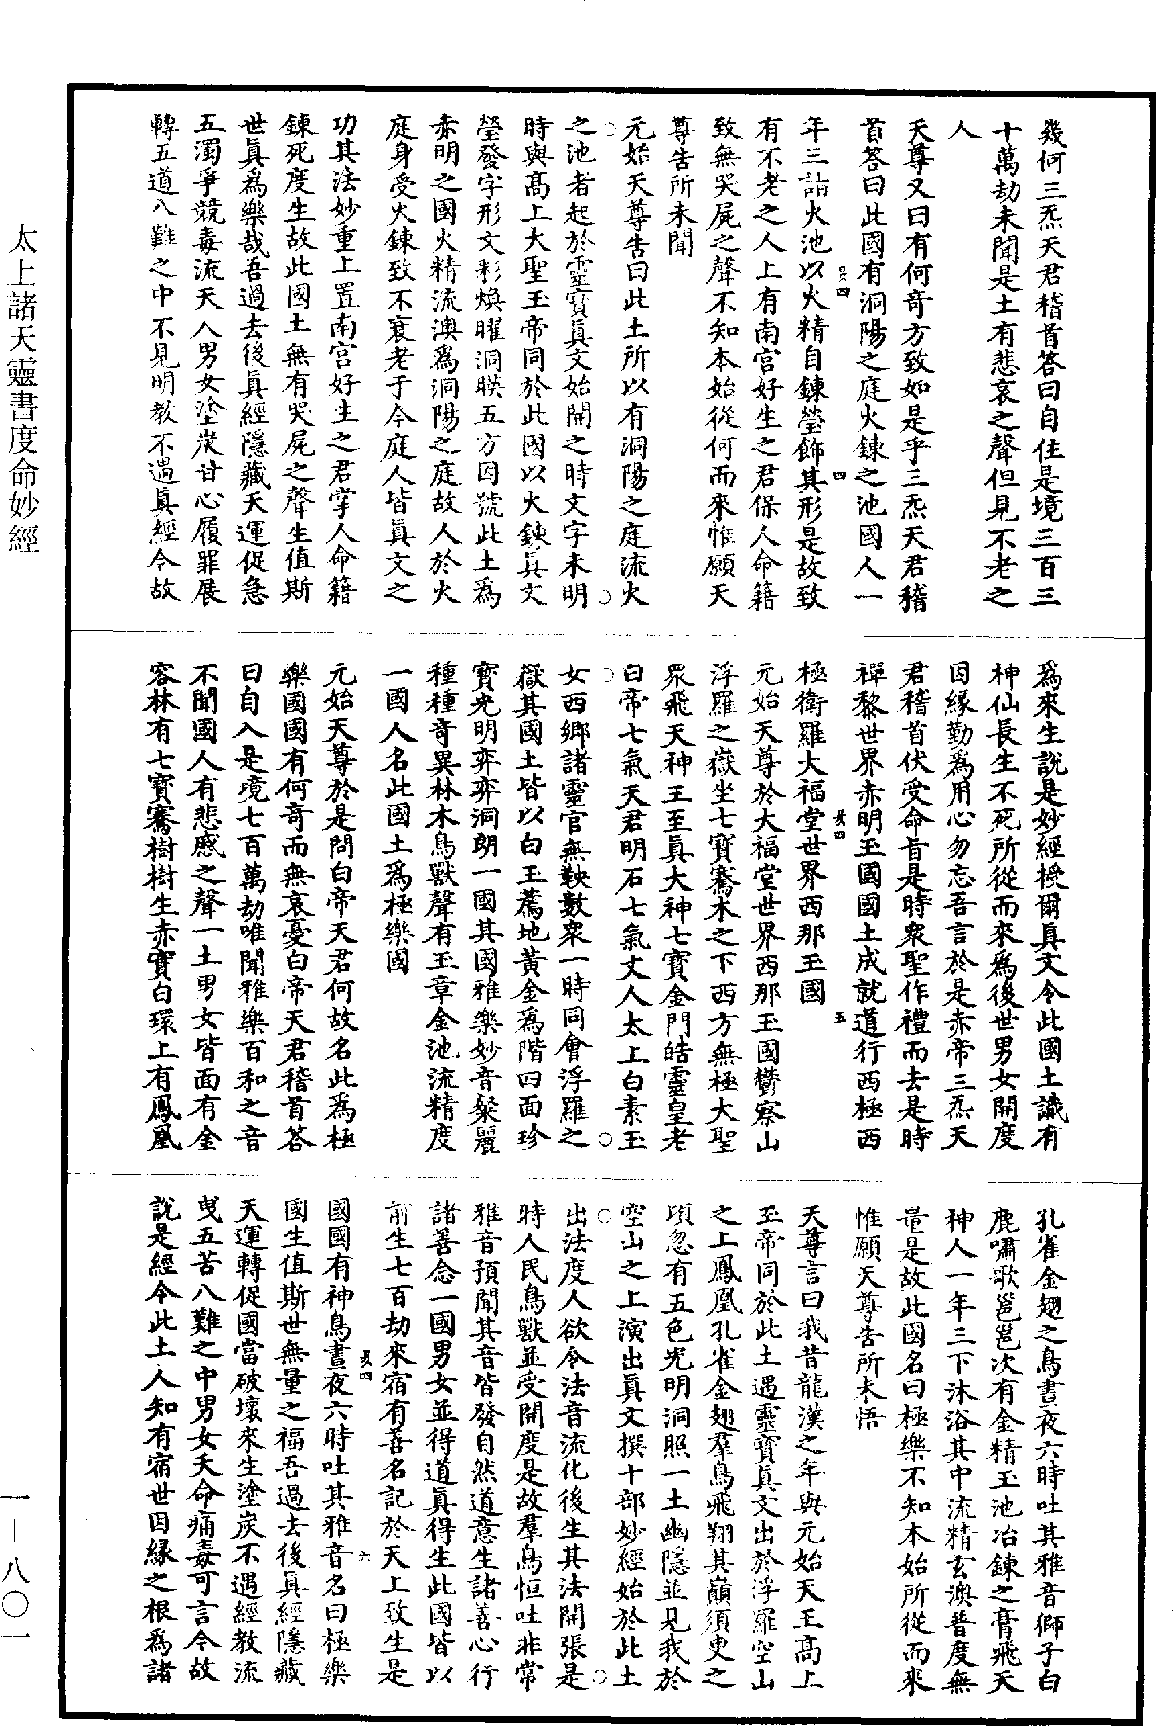 幾何三炁天君稽首答曰自住是境三百三
十萬劫未聞是土有悲哀之聲但見不老之
人
天尊又曰有何奇方致如是乎三炁天君稽
首答曰此國有洞陽之庭火鍊之池國人一
年三詣火池以火精自鍊瑩飾其形是故致
有不老之人上有南宮好生之君保人命籍
致無哭屍之聲不知本始從何而來惟願天
尊告所未聞
元始天尊告曰此土所以有洞陽之庭流火
之池者起於靈寶真文始開之時文字未明
時與高上大聖玉帝同於此國以火鍊真文
瑩發字形文彩煥曜洞暎五方因號此土為
赤明之國火精流澳為洞陽之庭故人於火
庭身受火鍊致不衰老于今庭人皆真文之
功其法妙重上置南宮好生之君掌人命籍
鍊死度生故此國土無有哭屍之聲生值斯
世真為樂哉吾過去後真經隱藏天運促急
五濁爭競毒流天人男女塗炭甘心履罪展
轉五道八難之中不見明教不遇真經今故
為來生說是妙經授爾真文令此國土識有
神仙長生不死所從而來為後世男女開度
因緣勤為用心勿忘吾言於是赤帝三炁天
君稽首伏受命旨是時眾聖作禮而去是時
禪黎世界赤明玉國國土成就道行西極西
極衛羅大福堂世界西那玉國
元始天尊於大福堂世界西那玉國鬱察山
浮羅之嶽坐七寶騫木之下西方無極大聖
眾飛天神王至真大神七寶金門皓靈皇老
白帝七氣天君明石七氣丈人太上白素玉
女西鄉諸靈官無鞅數眾一時同會浮羅之
嶽其國土皆以白玉薦地黃金為階四面珍
寶光明弈弈洞朗一國其國雅樂妙音粲麗
種種奇異林木鳥獸聲有玉章金池流精度
一國人名此國土為極樂國
元始天尊於是問白帝天君何故名此為極
樂國國有何奇而無哀憂白帝天君稽首答
曰自入是境七百萬劫唯聞雅樂百和之音
不聞國人有悲慼之聲一土男女皆面有金
容林有七寶騫樹樹生赤實白環上有鳳凰
孔雀金翅之鳥晝夜六時吐其雅音獅子白
鹿嘯歌邕邕次有金精玉池冶鍊之膏飛天
神人一年三下沐浴其中流精玄澳普度無
量是故此國名曰極樂不知本始所從而來
惟願天尊告所未悟
天尊言曰我昔龍漢之年與元始天王高上
玉帝同於此土遇靈寶真文出於浮羅空山
之上鳳凰孔雀金翅羣鳥飛翔其巔須臾之
頃忽有五色光明洞照一土幽隱並見我於
空山之上演出真文撰十部妙經始於此土
出法度人欲令法音流化後生其法開張是
時人民鳥獸並受開度是故羣鳥恒吐非常
雅音預聞其音皆發自然道意生諸善心行
諸善念一國男女並得道真得生此國皆以
前生七百劫來宿有善名記於天上致生是
國國有神鳥晝夜六時吐其雅音名曰極樂
國生值斯世無量之福吾過去後真經隱藏
天運轉促國當破壞來生塗炭不遇經教流
曳五苦八難之中男女夭命痛毒可言今故
說是經令此土人知有宿世因緣之根為諸
太上諸天靈書度命妙經
一—八〇一